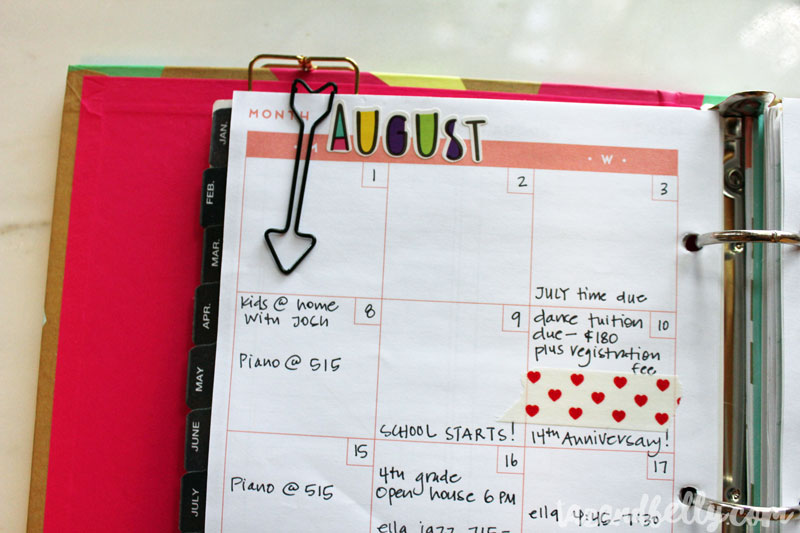 MONTH
AUGUST
M
W
JAN.
FEB.
MAR.
APR.
MAY
JUNE
JULY
1
2
3
JULY time due
8
Kids @ home
with JOSH
Piano @ 515
9
SCHOOL STARTS!
10
dance tuition
due - $180
plus registration
fee
14th Anniversary!
15
Piano @ 515
16
4th grade
Open house 6 PM
ella jazz 715-
17
ella 4:45-7:30